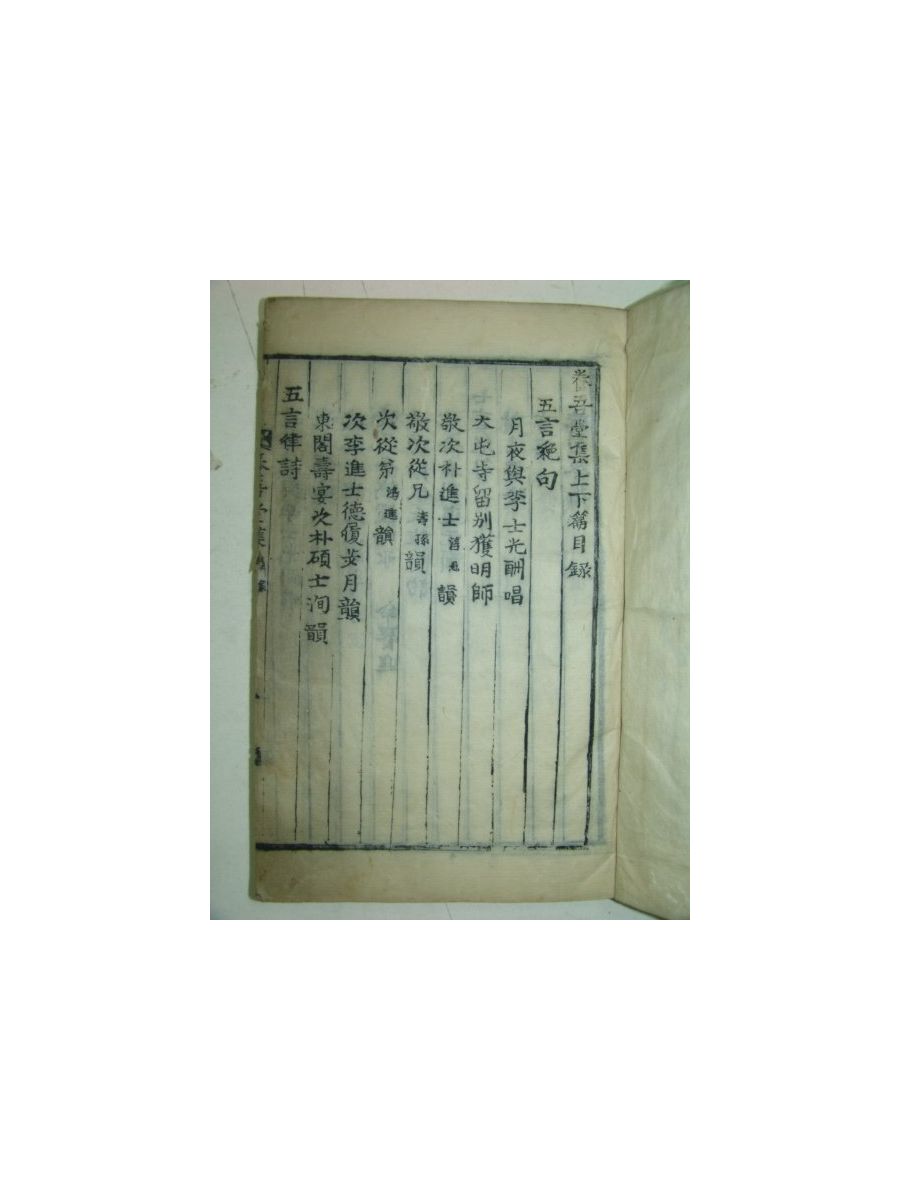 養吾堂集上下篇目錄
五言絶句
月夜與李士光酬唱
大屯寺留別獲明師
敬次朴進士 韻
敬次從兄 壽孫 韻
次從弟 鴻進 韻
次李進士德履 月韻
東閣壽宴次朴碩士洵韻
五言律詩